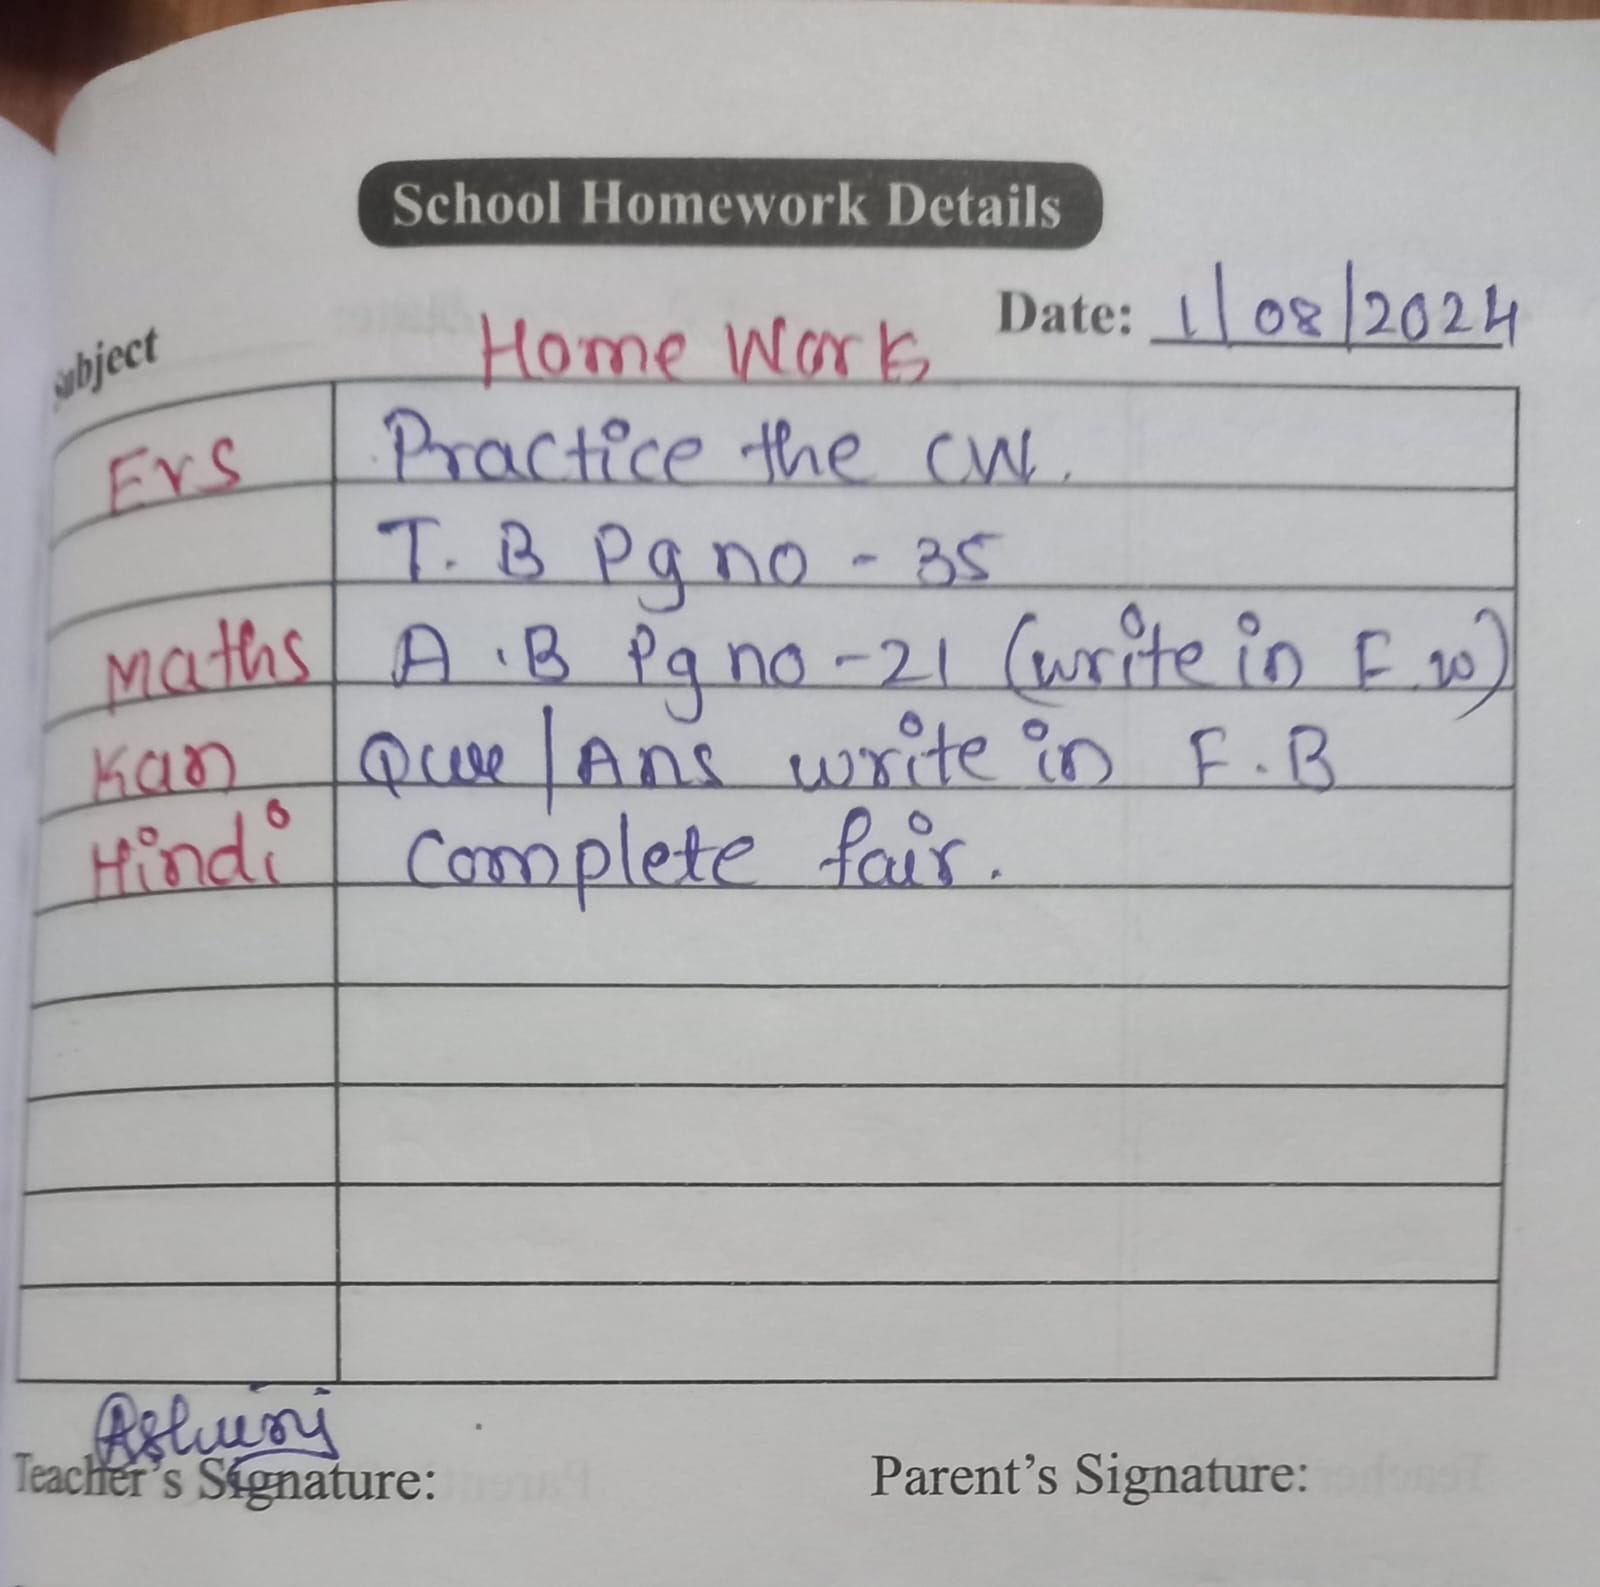 School Homework Details
Date: 1/08/2024
Subject
Home Work
Evs Practice the CW.
T. B Pg no - 35
Maths A.B Pg no - 21 (write in F.w)
Kan Que/Ans write in F.B
Hindi Complete fair.
Ashwini
Teacher's Signature:
Parent's Signature: